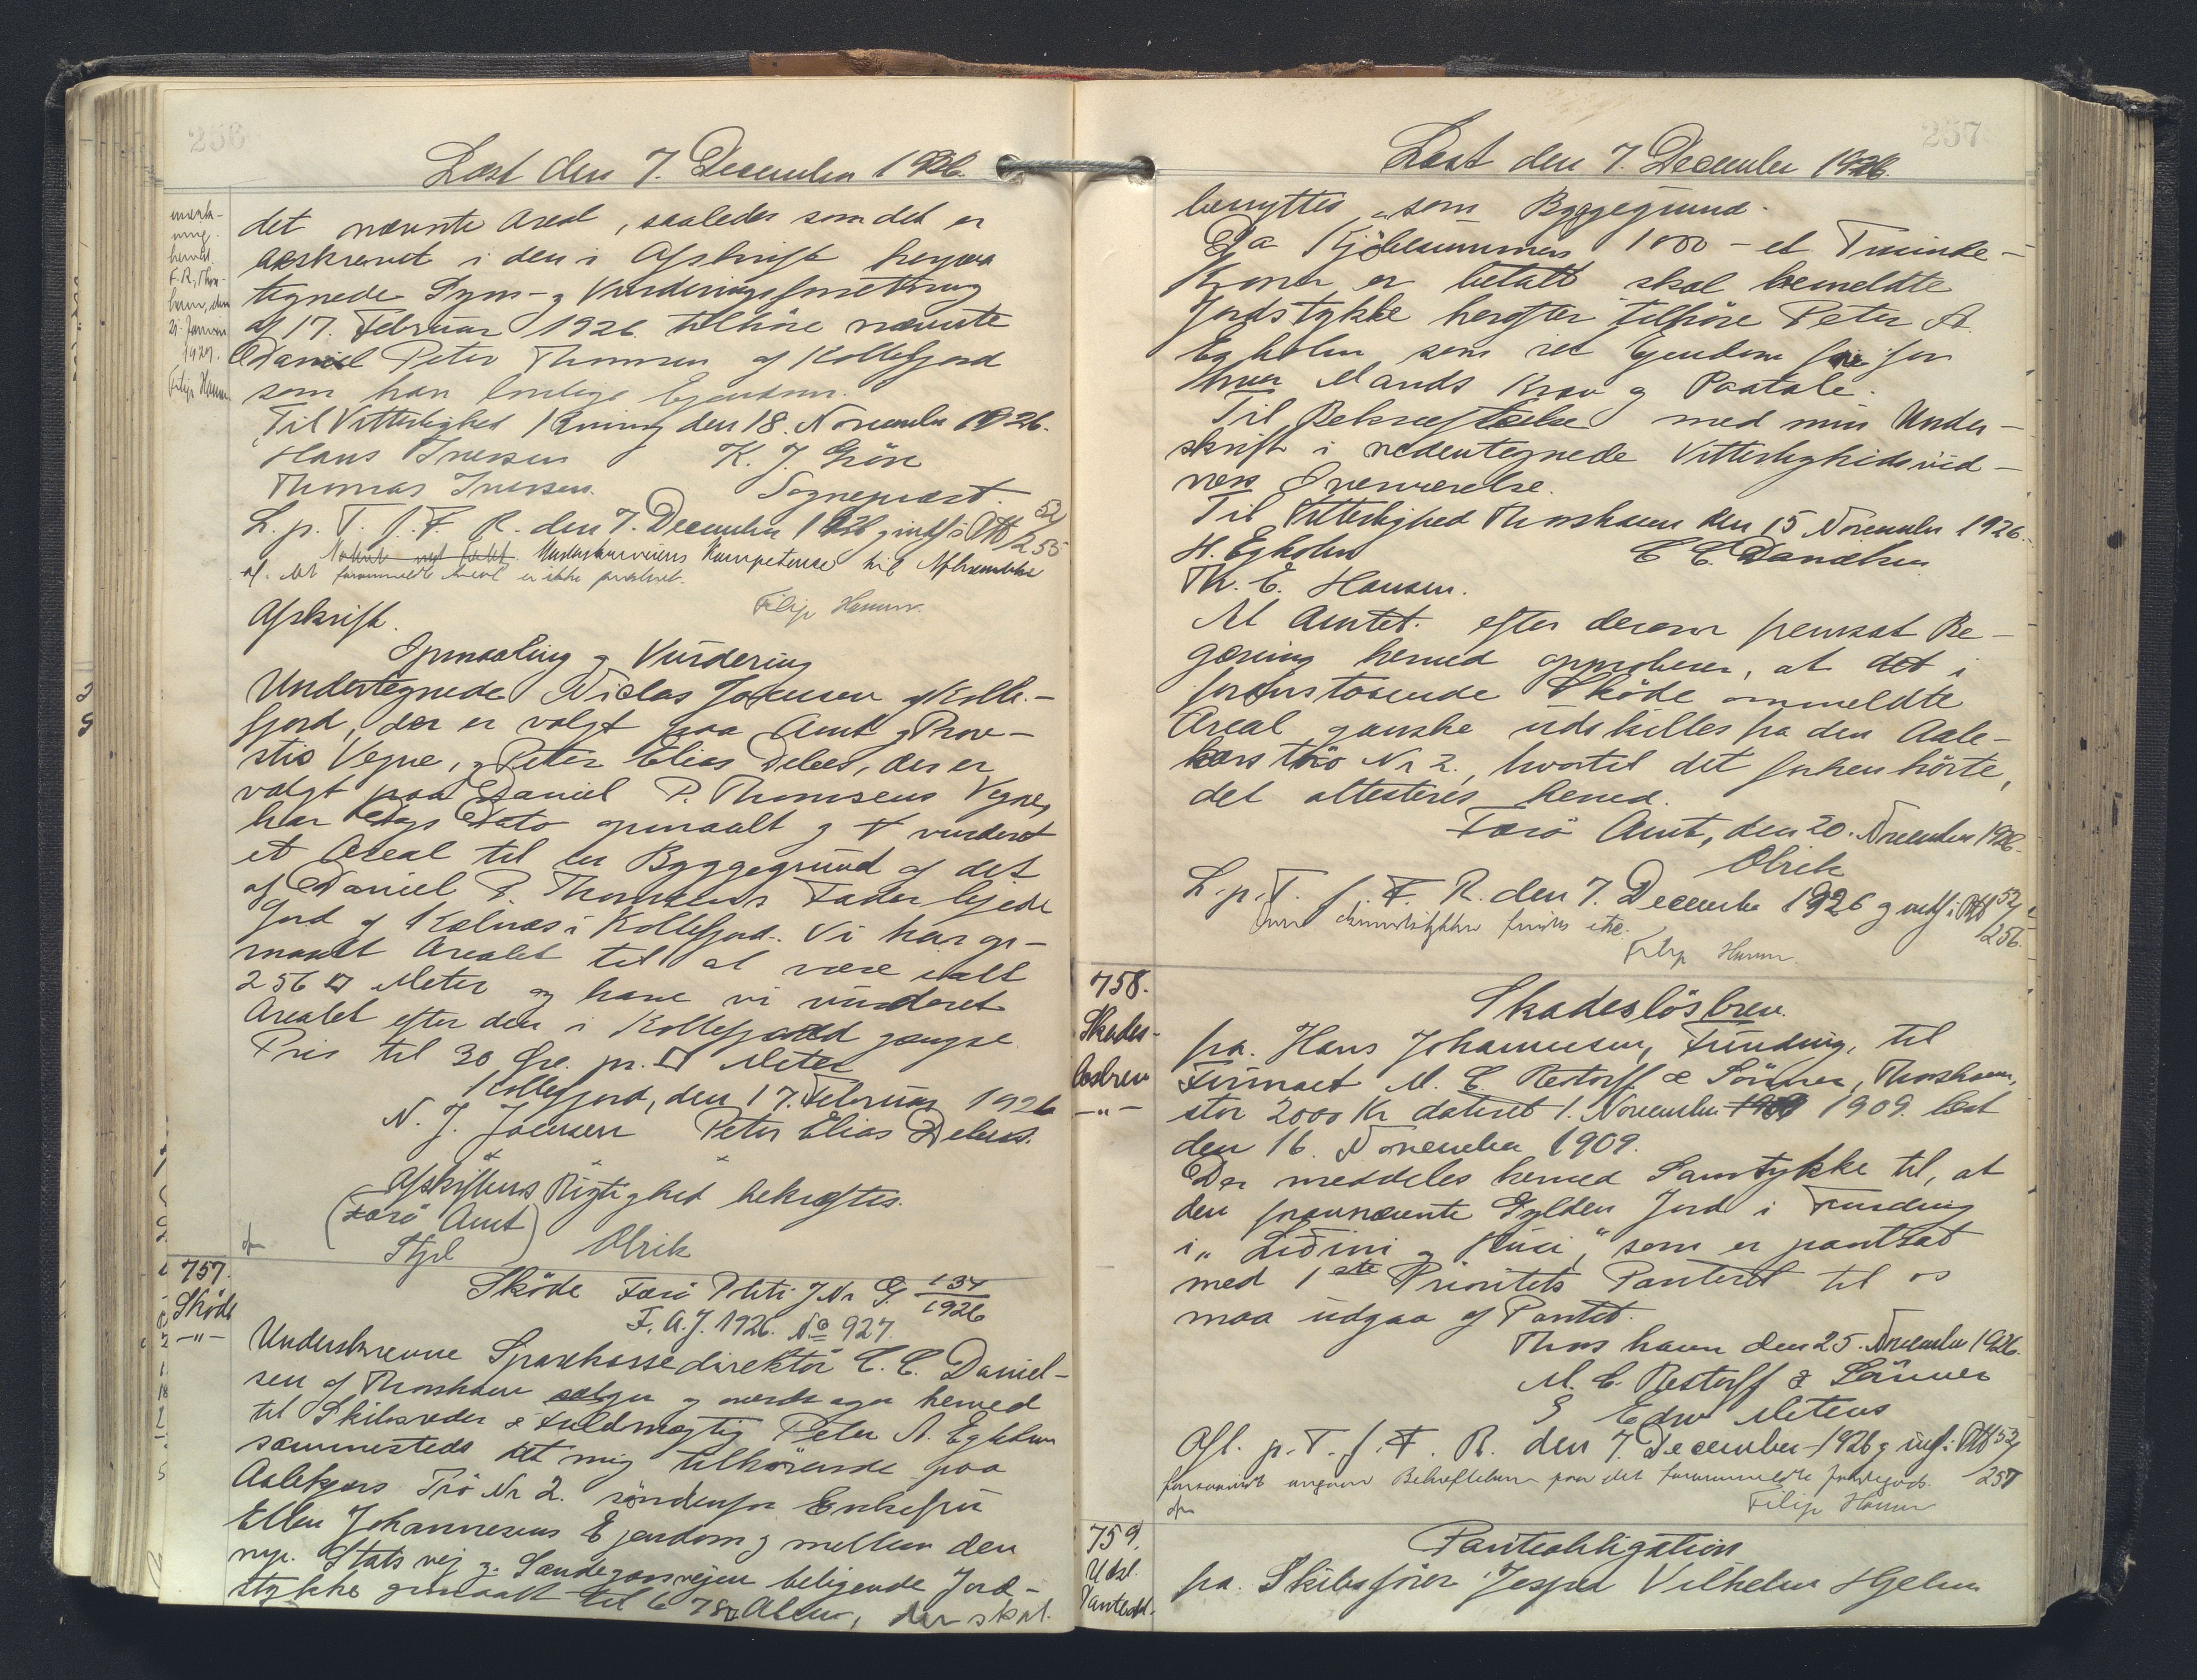 256
Læst den 7. December 1926.
mærk-
ning
F. R., Thors-
havn, den
21. Januar
1929.
Filip Hamm
det nævnte Areal, saaledes som det er
beskrevet i den i Afskrift herpaa
tegnede Syns- og Vurderingsforretning
af 17. Februar 1926 tilhøre nævnte
Daniel Peter Thomsen af Kollefjord
som han lovlige Ejendom.
Til Vitterlighed Kvivig den 18. November 1926.
Hans Iversen K. J. Grön
Thomas Iversen. Sognepræst.
L. p. T. f. F. R. den 7. December 1926 og indf. i Ott 52/255
Underskriverens Kompetence til Afhændelse
af det forommeldte Areal er ikke
Filip Hamm.
Afskrift.
Opmaaling og Vurdering
Undertegnede Niclas Joensen af Kolle-
fjord, der er valgt paa Amt og Prov-
stis Vegne, og Peter Elias Debes, der er
valgt paa Daniel P. Thomsens Vegne,
har Dags Dato opmaalt og vurderet
et Areal til en Byggegrund af det
af Daniel P. Thomsens Fader lejede
Jord af Kalnæs i Kollefjord. Vi har op-
maalt Arealet til at være ialt
256 □ Meter og have vi vurderet
Arealet efter den i Kollefjord gangse
Pris til 30 Øre pr. □ Meter
Kollefjord, den 17. Februar 1926
N. J. Joensen Peter Elias Debes.
Afskriftens Rigtighed bekræftes.
(Færö Amt)
Stpl Olrik
757.
Skøde
-"-
Skøde Færö Politi J Nr G. 134/1926
F. A. J. 1926. No 927.
Underskrevne Sparekassedirektör C. C. Daniel-
sen af Thorshavn sælger og overdrager herved
til Skibsreder & Fuldmægtig Peter A. Egholm
sammesteds det mig tilhörende paa
Aalekers Trö Nr 2. söndenfor Enkefru
Ellen Johannesens Ejendom og mellem den
nye Statsvej og Sandegærsvejen beliggende Jord-
stykke opmaalt til 678 □ Alen, der skal
257
Læst den 7. December 1926.
benyttes som Byggegrund.
Da Kjöbesummen 1000 - et Tusinde -
Kroner er betalt skal bemeldte
Jordstykke herefter tilhöre Peter A.
Egholm som ret Ejendom fri for
hver Mands Krav og Paatale.
Til Bekræftelse med min Under-
skrift i nedentegnede Vitterlighedsvid-
ners Overværelse.
Til Vitterlighed Thorshavn den 15 November 1926.
H. Egholm C. C. Danielsen
Th. E. Hansen.
At Amtet efter derom fremsat Be-
gæring herved approberer, at det i
foranstaaende Sköde ommeldte
Areal ganske udskilles fra den Aale-
kers trö Nr 2., hvortil det forhen hörte,
det attesteres herved.
Færö Amt, den 20. November 1926.
Olrik
L. p. T. f. F. R. den 7. December 1926 og indf. i Ott 52/256.
Filip Hamm.
758.
Skades-
løsbrev
-"-
Skadeslösbrev.
fra. Hans Johannesen, Funding, til
Firmaet M. C. Restorff & Sönner, Thorshavn,
stor 2000 Kr dateret 1. November 1909. læst
den 16. November 1909.
Der meddeles herved Samtykke til, at
den forannævnte Gylden Jord i Funding
i „Lidini og Húsi," som er pantsat
med 1ste Prioritets Panteret til os
maa udgaa af Pantet.
Thorshavn den 25. November 1926.
M. C. Restorff & Sönner
Edw Mitens
Afl. p. T. f. F. R. den 7. December 1926 og indf. i Ott 52/257
forsaavidt angaar Behæftelsen paa det forommeldte Jordegods.
Filip Hamm
759.
Udsl.
Panteobl.
Panteobligation
fra. Skibsförer Jesper Vilhelm Hjelm